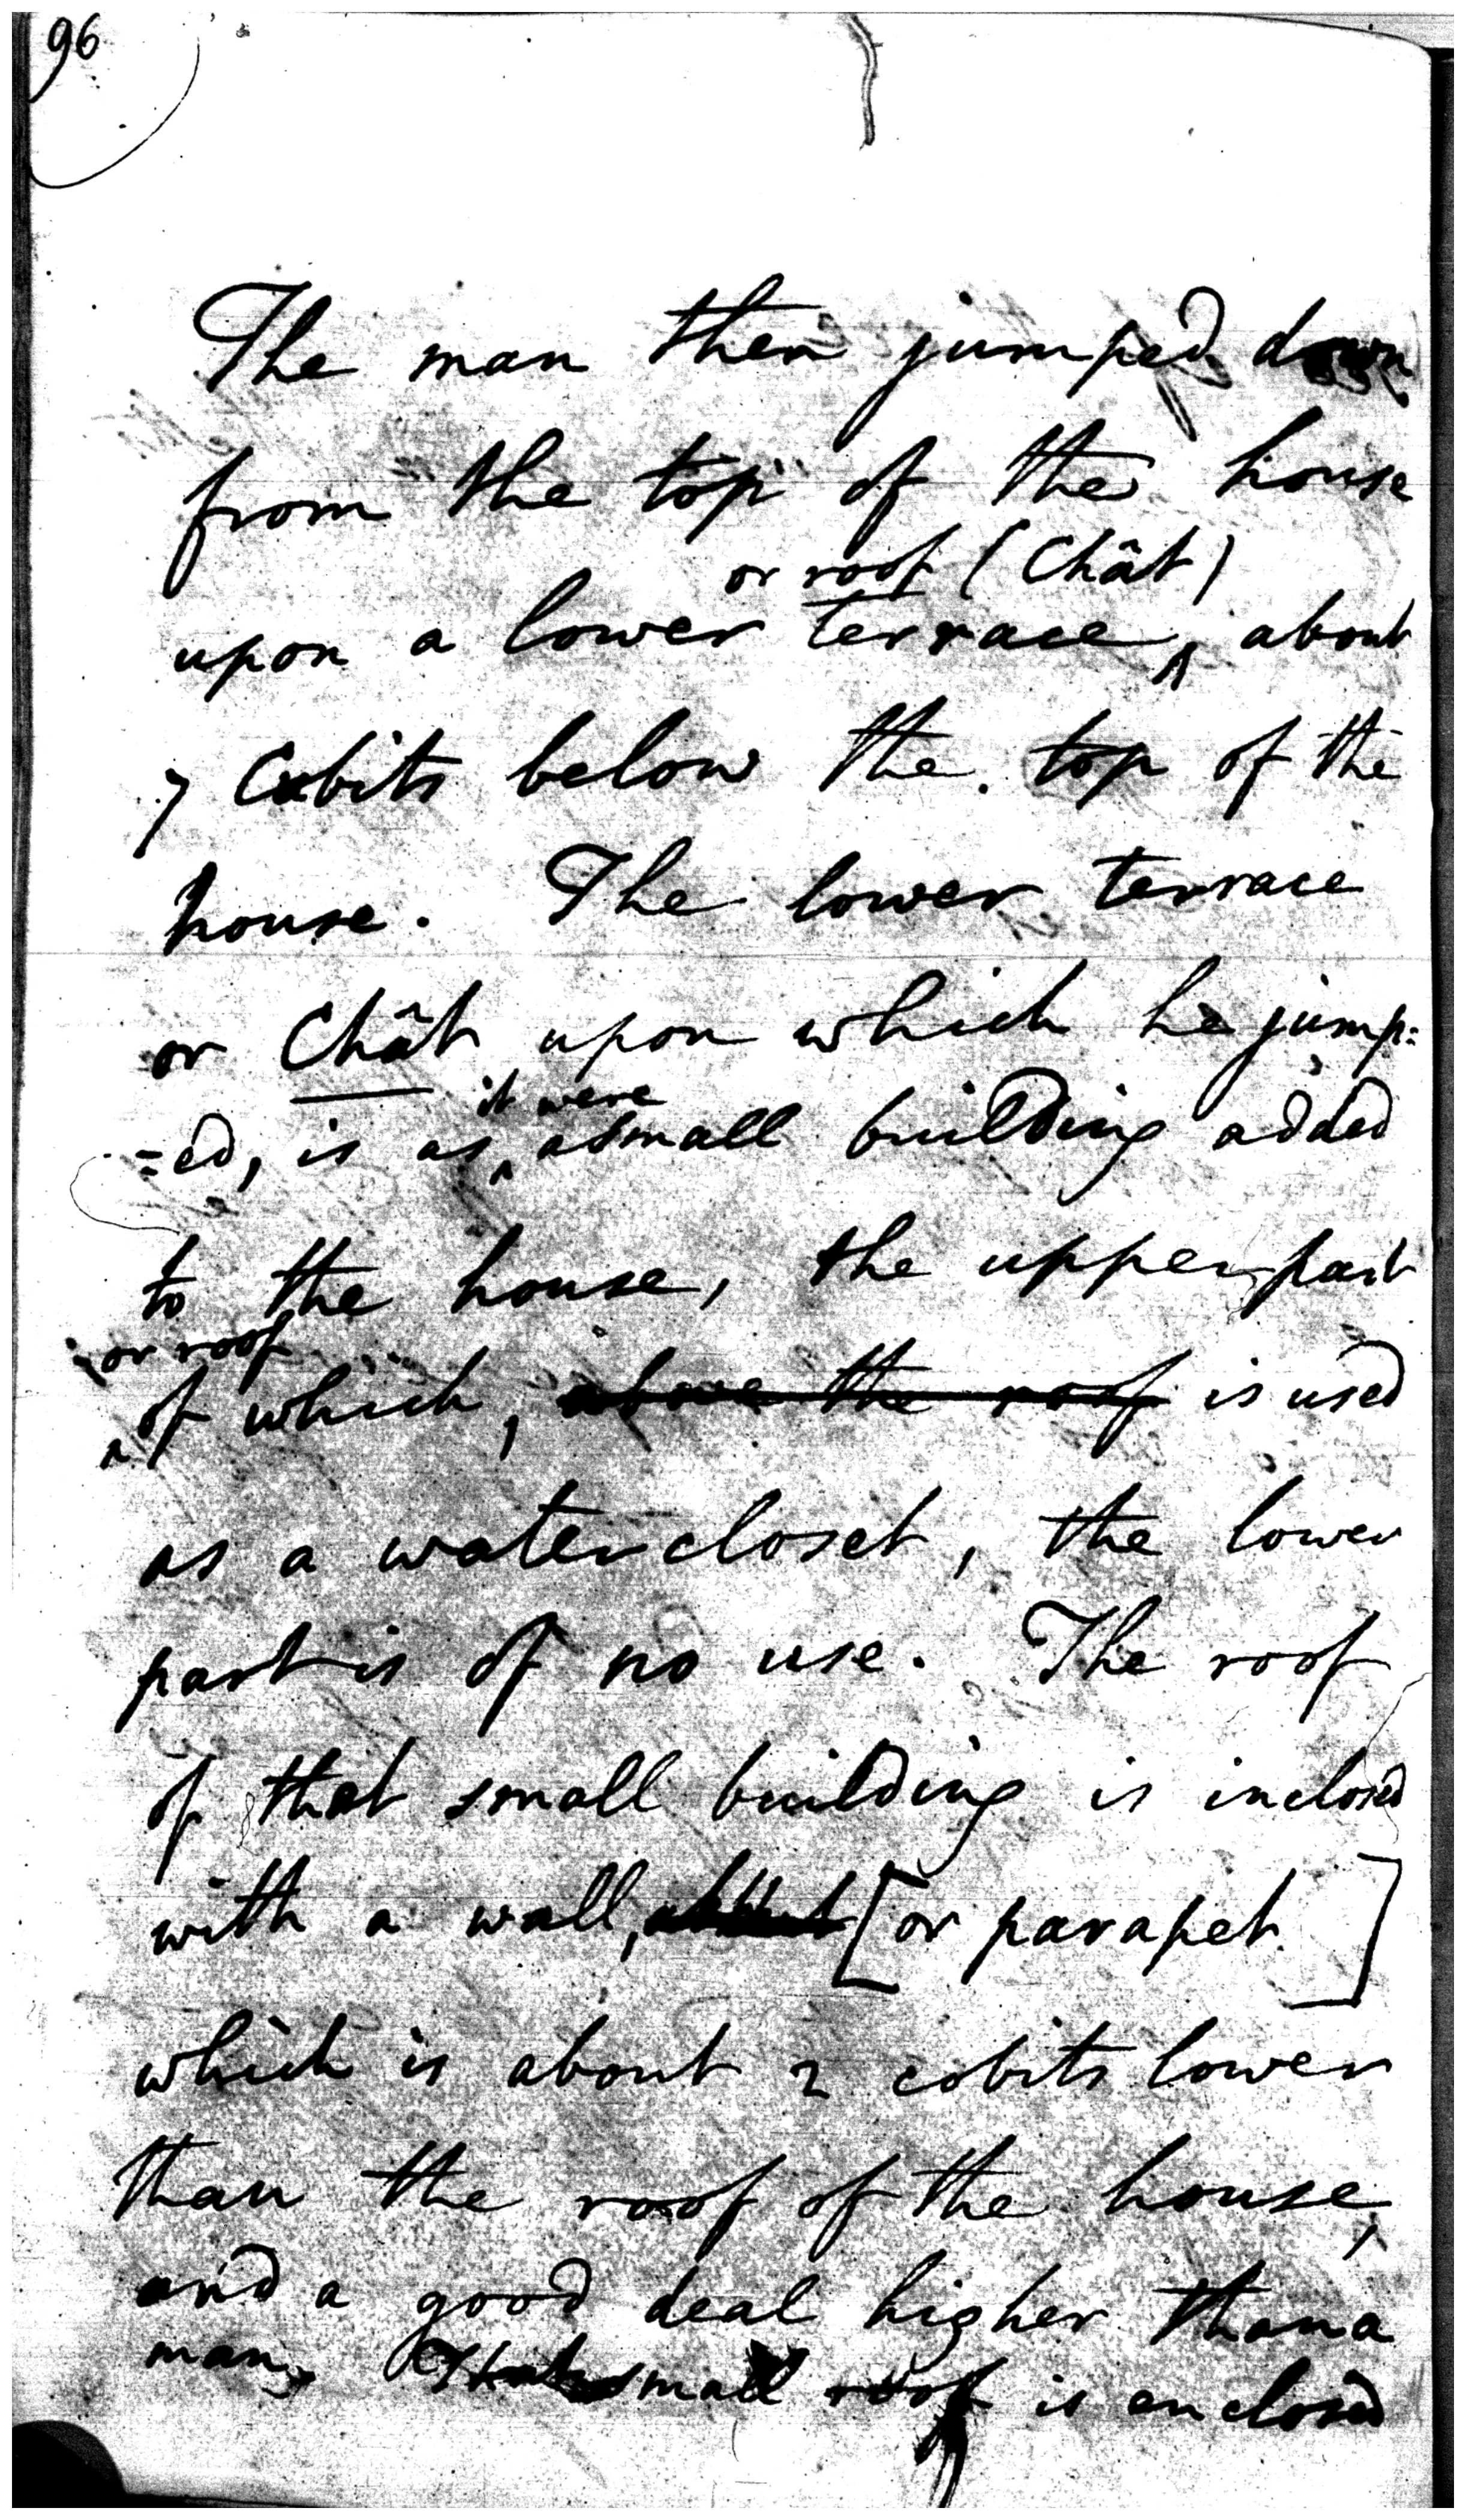 96
The man then jumped down
from the top of the house
or roof (Chât)
upon a lower terrace, about
7 Cobits below the top of the
house. The lower terrace
or Chât upon which he jump:
=ed, is as it were
a small building added
to the house, the upper part
or roof
of which, above the roof is used
as a water closet, the lower
part is of no use. The roof
of that small building is inclosed
with a wall, [or parapet]
which is about 2 cobits lower
than the roof of the house,
and a good deal higher than a
man. That small roof is enclosed